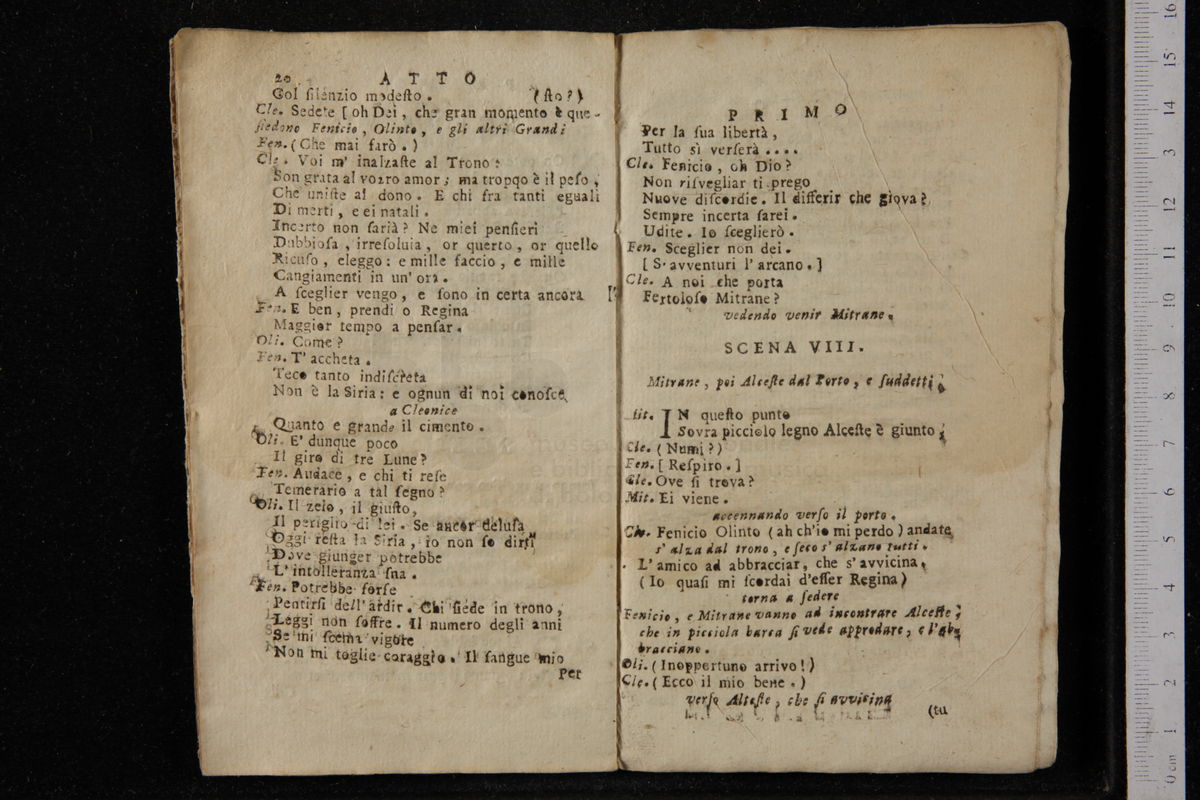 20 ATTO
Gol ſilenzio modeſto . (ſto?)
Cle. Sedete [ oh Dei, che gran momento è que-
ſiedono Fenicio, Olinto, e gli altri Grandi
Fen. (Che mai farò.)
Cle. Voi m' inalzaſte al Trono:
Son grata al voſtro amor; ma tropqo è il peſo,
Che uniſte al dono. E chi fra tanti eguali
Di merti, e ei natali.
Incerto non farià? Ne miei penſieri
Dubbioſa, irreſoluia, or querto, or quello
Ricuſo, eleggo: e mille faccio, e mille
Cangiamenti in un' ora.
A ſceglier vengo, e ſono in certa ancora
Fen. E ben, prendi o Regina
Maggior tempo a penſar.
Oli. Come?
Fen. T' accheta.
Teco tanto indiſcreta
Non è la Siria: e ognun di noi conoſce
a Cleonice
Quanto e grande il cimento.
Oli. E' dunque poco
Il giro di tre Lune?
Fen. Audace, e chi ti reſe
Temerario a tal ſegno?
Oli. Il zelo, il giuſto,
Il periglio di lei. Se ancor deluſa
Oggi reſta la Siria, io non ſo dirti
Dove giunger potrebbe
L' intolleranza ſna.
Fen. Potrebbe forſe
Pentirſi dell' ardir. Chi ſiede in trono,
Leggi non ſoffre. Il numero degli anni
Se mi ſcema vigore
Non mi toglie coraggio. Il ſangue mio
Per
PRIMO
Per la ſua libertà,
Tutto sì verſerà ....
Cle. Fenicio, oh Dio?
Non riſvegliar ti prego
Nuove diſcordie. Il differir che giova?
Sempre incerta ſarei.
Udite. Io ſceglierò.
Fen. Sceglier non dei.
[ S'avventuri l' arcano.]
Cle. A noi che porta
Fertoloſo Mitrane?
vedendo venir Mitrane.
SCENA VIII.
Mitrane, poi Alceſte dal Porto, e ſuddetti
Mit. IN queſto punto
Sovra picciolo legno Alceſte è giunto;
Cle. (Numi?)
Fen. [Reſpiro.]
Cle. Ove ſi trova?
Mit. Ei viene.
accennando verſo il porto.
Cle. Fenicio Olinto (ah ch'io mi perdo) andate
s' alza dal trono, e ſeco s' alzano tutti.
L' amico ad abbracciar, che s' avvicina.
(Io quaſi mi ſcordai d'eſſer Regina)
torna a ſedere
Fenicio, e Mitrane vanno ad incontrare Alceſte;
che in picciola barca ſi vede approdare, e l'ab
bracciano.
Oli. (Inoppertuno arrivo!)
Cle. (Ecco il mio bene.)
verſo Alteſte, che ſi avvicina
(tu